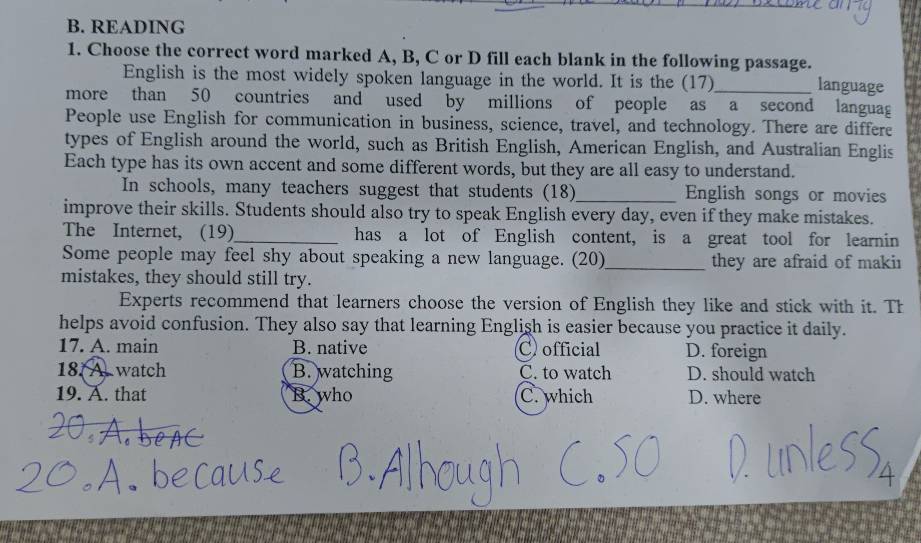 B. READING
1. Choose the correct word marked A, B, C or D fill each blank in the following passage.
English is the most widely spoken language in the world. It is the (17)__________ language
more than 50 countries and used by millions of people as a second languag
People use English for communication in business, science, travel, and technology. There are differe
types of English around the world, such as British English, American English, and Australian Englis
Each type has its own accent and some different words, but they are all easy to understand.
In schools, many teachers suggest that students (18)__________ English songs or movies
improve their skills. Students should also try to speak English every day, even if they make mistakes.
The Internet, (19)__________ has a lot of English content, is a great tool for learnin
Some people may feel shy about speaking a new language. (20)__________ they are afraid of makin
mistakes, they should still try.
Experts recommend that learners choose the version of English they like and stick with it. Th
helps avoid confusion. They also say that learning English is easier because you practice it daily.
17. A. main B. native C. official D. foreign
18. A. watch B. watching C. to watch D. should watch
19. A. that B. who C. which D. where
20. A. beac
20. A. because B. Alhough C. SO D. unless
4